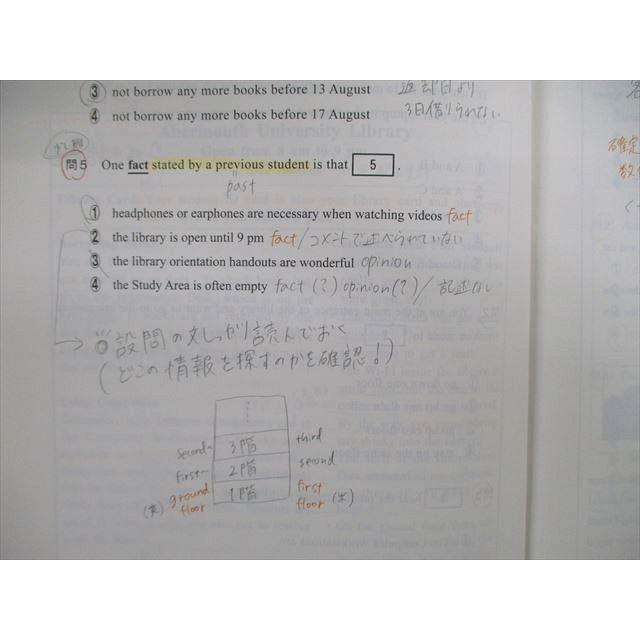 ③ not borrow any more books before 13 August 返却日より
④ not borrow any more books before 17 August 3日借りられない
Aberinouth University Library
問5 One fact stated by a previous student is that 5 .
past
① headphones or earphones are necessary when watching videos fact
② the library is open until 9 pm fact/コメントで述べられていない
③ the library orientation handouts are wonderful opinion
④ the Study Area is often empty fact(?)opinion(?)/記述なし
→ ◎設問の文しっかり読んでおく
(どこの情報を探すのかを確認!)
second- 3階 third
first- 2階 second
ground floor 1階 first floor (米)
確定